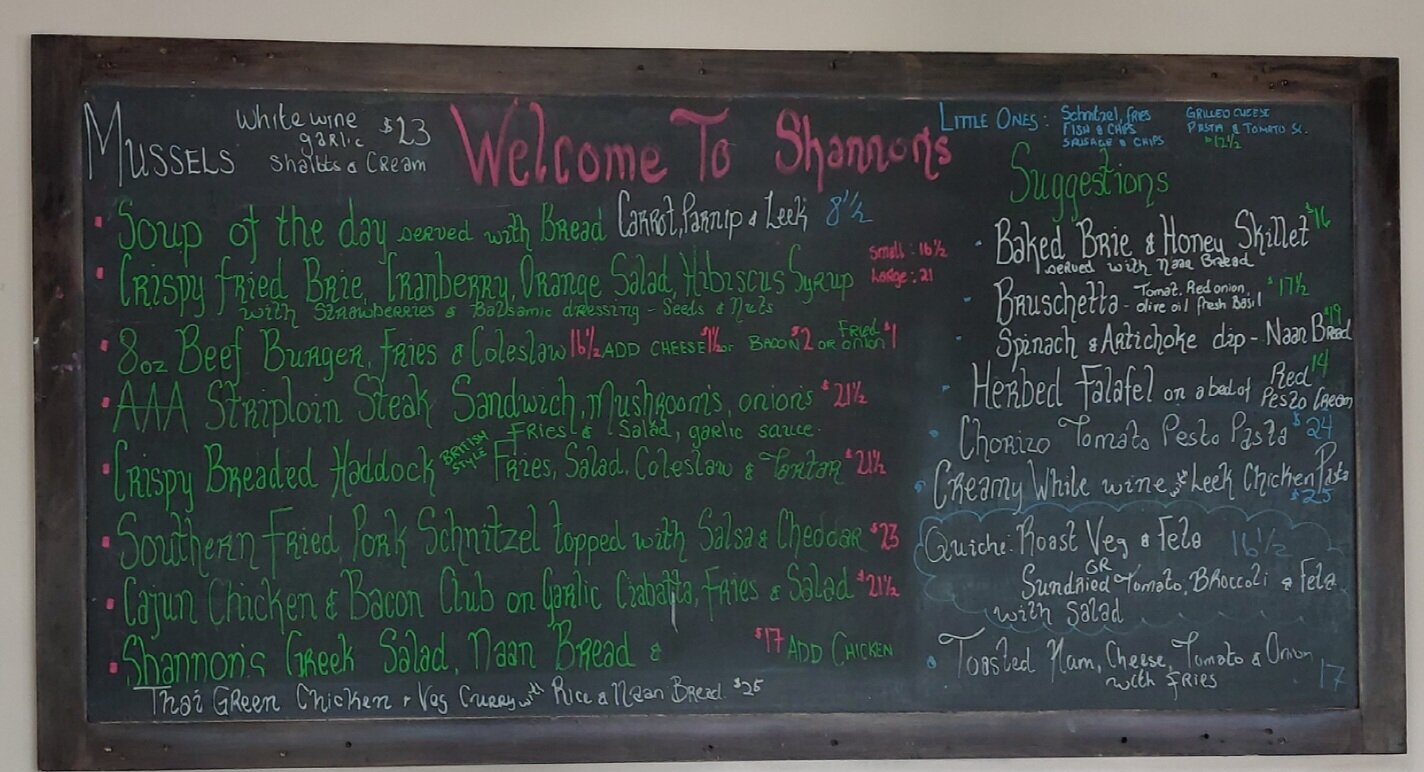 MUSSELS
White wine
garlic
Shallots & Cream
$23
Welcome To Shannon's
LITTLE ONES:
Schnitzel, fries
FISH & CHIPS
SAUSAGE & CHIPS
GRILLED CHEESE
PASTA & TOMATO Sc.
$12½
Soup of the day served with Bread Carrot, Parnip & Leek 8½
Crispy Fried Brie, Cranberry, Orange Salad, Hibiscus Syrup
Small: 16½
Large: 21
with Strawberries & Balsamic dressing - Seeds & Nuts
8oz Beef Burger, Fries & Coleslaw 16½ ADD CHEESE $1½ or BACON $2 OR Fried onion $1
AAA Striploin Steak Sandwich, Mushrooms, onions $21½
Fries & Salad, garlic sauce.
Crispy Breaded Haddock BRITISH STYLE Fries, Salad, Coleslaw & Tartar $21½
Southern Fried Pork Schnitzel topped with Salsa & Cheddar $23
Cajun Chicken & Bacon Club on Garlic Ciabatta, Fries & Salad $21½
Shannon's Greek Salad, Naan Bread & $17 ADD CHICKEN
Thai Green Chicken & Veg Curry with Rice & Naan Bread. $25
Suggestions
Baked Brie & Honey Skillet $16
served with Naan Bread
Bruschetta - Tomat. Red onion, $17½
olive oil fresh Basil
Spinach & Artichoke dip - Naan Bread $19
Herbed Falafel on a bed of Red 14
Pesto Cream
Chorizo Tomato Pesto Pasta $24
Creamy White wine with Leek Chicken Pasta
$25
Quiche: Roast Veg & Feta 16½
OR
Sundried Tomato, Broccoli & Feta
with Salad
Toasted Ham, Cheese, Tomato & Onion
with Fries 17